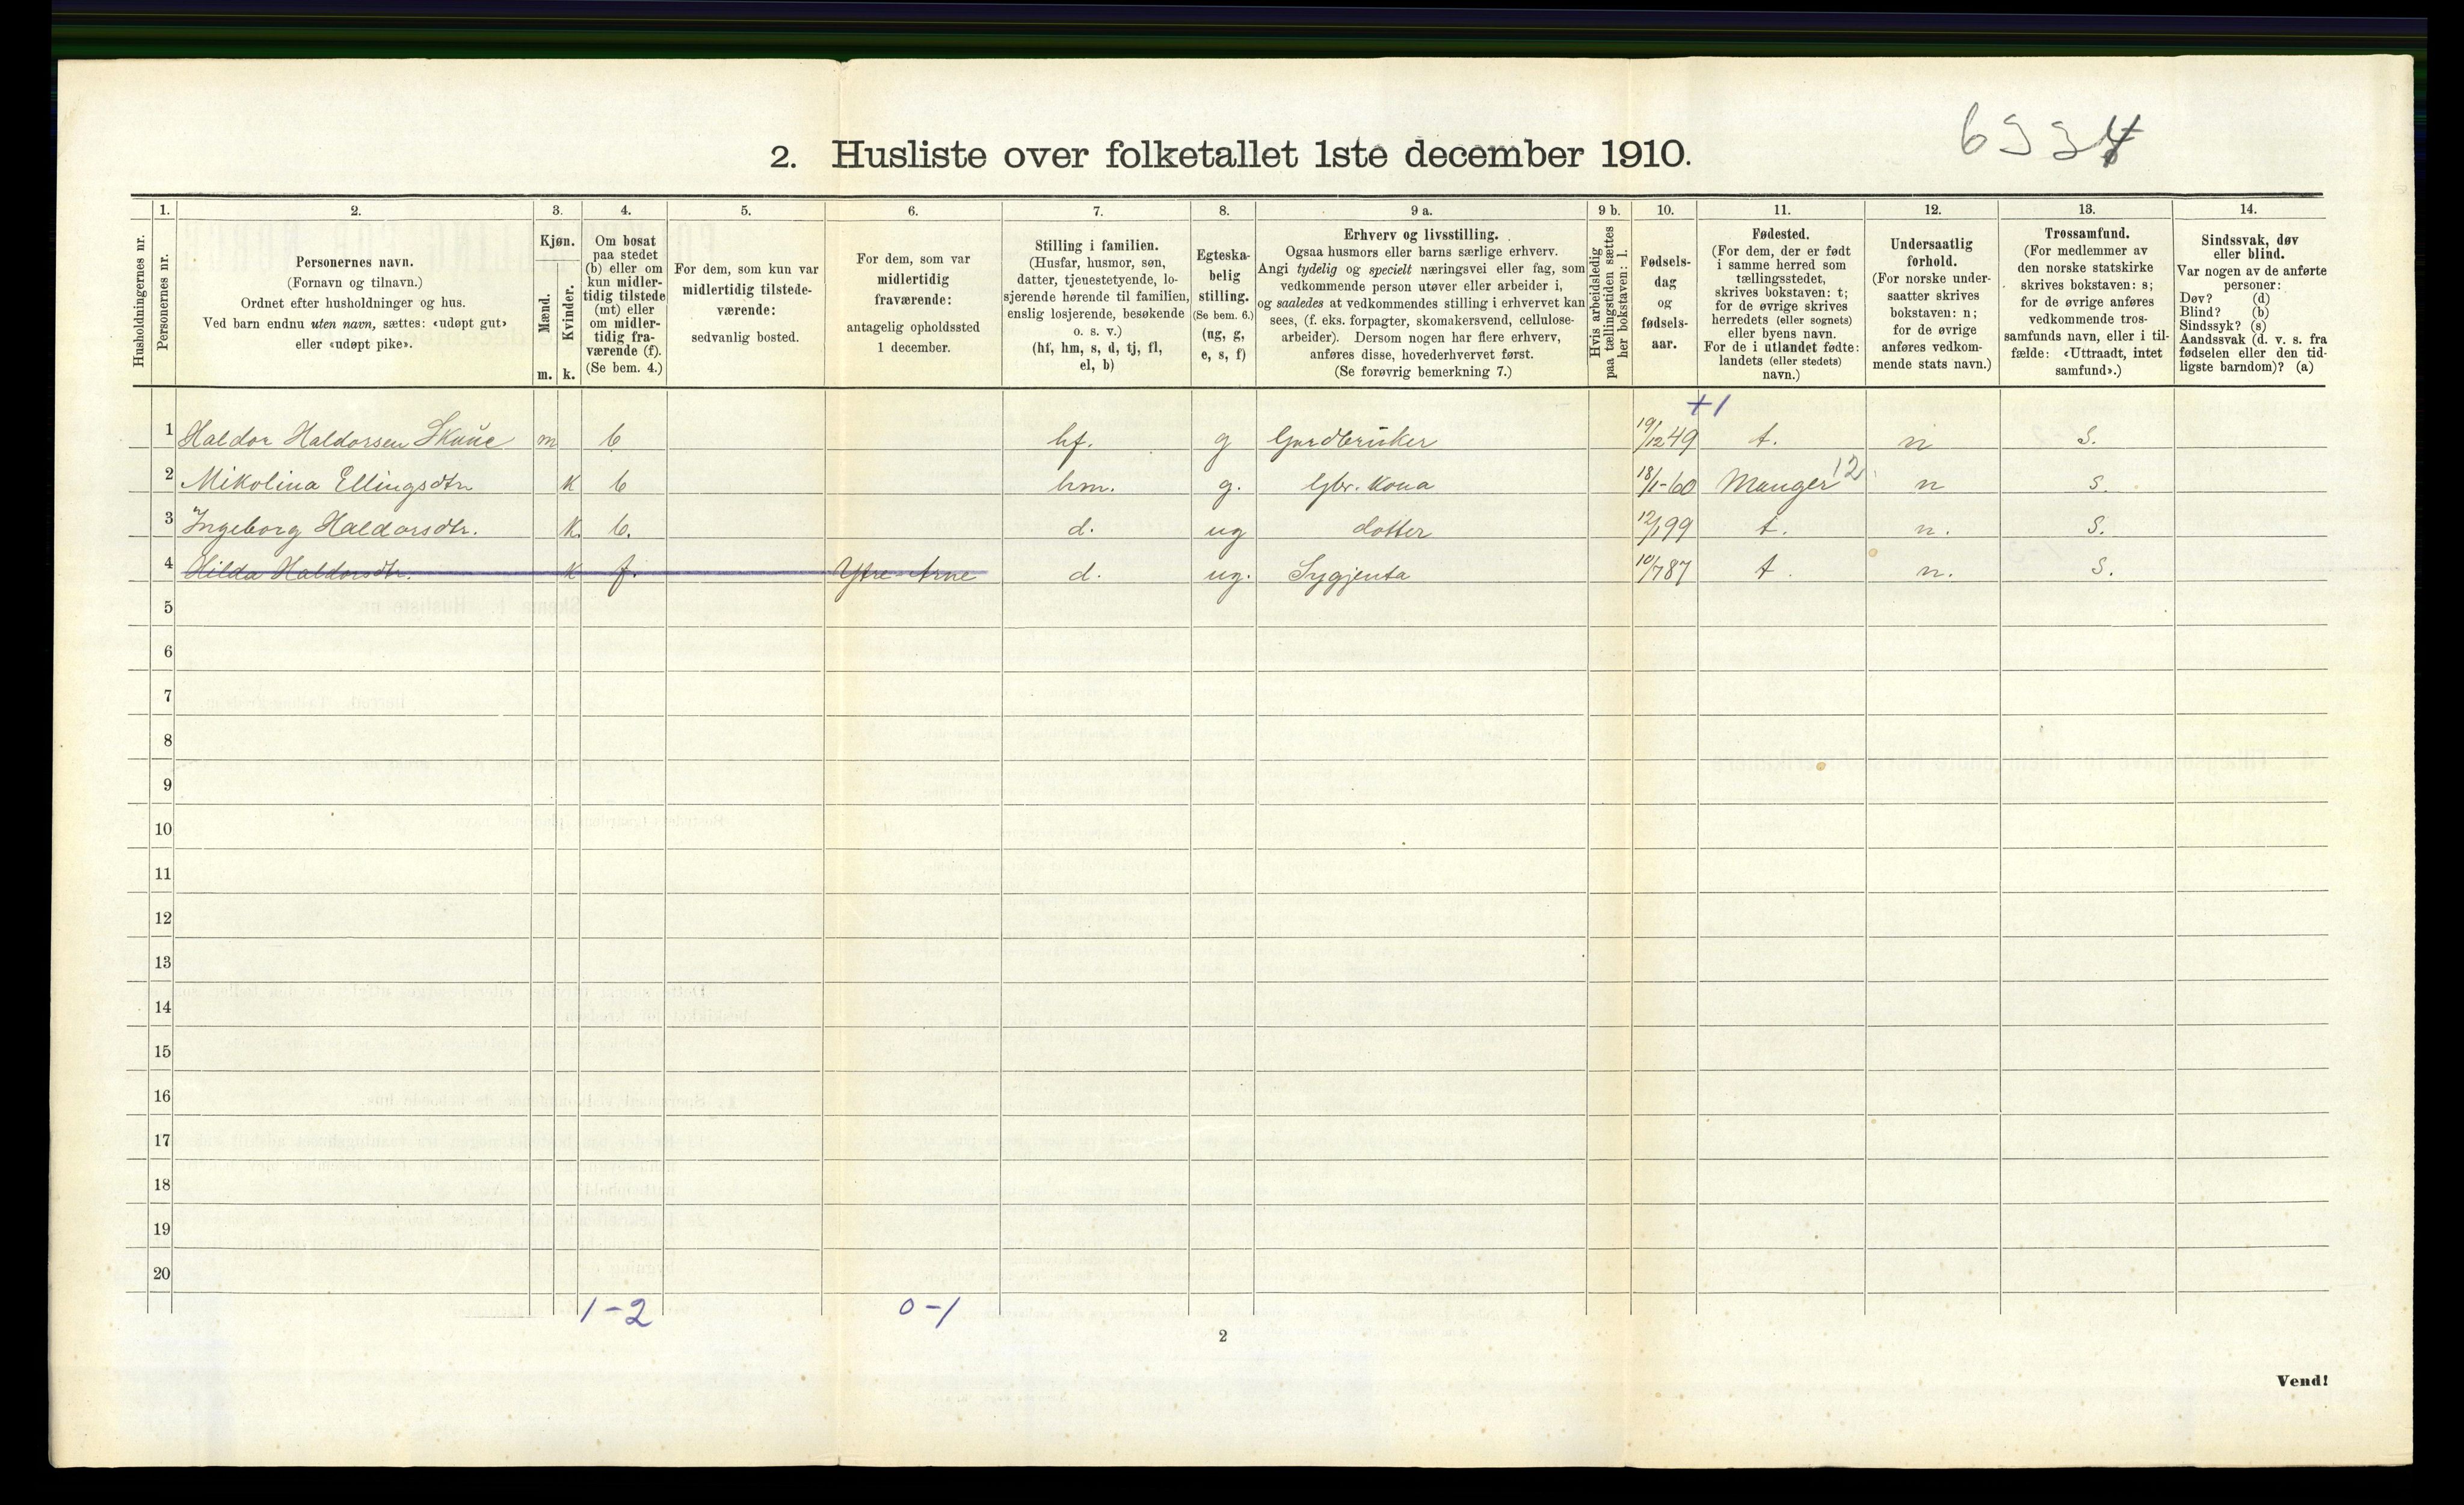 2. Husliste over folketallet 1ste december 1910.
Husholdningernes nr.
1.
Personernes nr.
2.
Personernes navn.
(Fornavn og tilnavn.)
Ordnet efter husholdninger og hus.
Ved barn endnu uten navn, sættes: «udøpt gut»
eller «udøpt pike».
3.
Kjøn.
Mænd.
Kvinder.
m. k.
4.
Om bosat
paa stedet
(b) eller om
kun midler-
tidig tilstede
(mt) eller
om midler-
tidig fra-
værende (f).
(Se bem. 4.)
5.
For dem, som kun var
midlertidig tilstede-
værende:
sedvanlig bosted.
6.
For dem, som var
midlertidig
fraværende:
antagelig opholdssted
1 december.
7.
Stilling i familien.
(Husfar, husmor, søn,
datter, tjenestetyende, lo-
sjerende hørende til familien,
enslig losjerende, besøkende
o. s. v.)
(hf, hm, s, d, tj, fl,
el, b)
8.
Egteska-
belig
stilling.
(Se bem. 6.)
(ug, g,
e, s, f)
9 a.
Erhverv og livsstilling.
Ogsaa husmors eller barns særlige erhverv.
Angi tydelig og specielt næringsvei eller fag, som
vedkommende person utøver eller arbeider i,
og saaledes at vedkommendes stilling i erhvervet kan
sees, (f. eks. forpagter, skomakersvend, cellulose-
arbeider). Dersom nogen har flere erhverv,
anføres disse, hovederhvervet først.
(Se forøvrig bemerkning 7.)
9 b.
Hvis arbeidsledig
paa tællingstiden sættes
her bokstaven: l.
10.
Fødsels-
dag
og
fødsels-
aar.
11.
Fødested.
(For dem, der er født
i samme herred som
tællingsstedet,
skrives bokstaven: t;
for de øvrige skrives
herredets (eller sognets)
eller byens navn.
For de i utlandet fødte:
landets (eller stedets)
navn.)
12.
Undersaatlig
forhold.
(For norske under-
saatter skrives
bokstaven: n;
for de øvrige
anføres vedkom-
mende stats navn.)
13.
Trossamfund.
(For medlemmer av
den norske statskirke
skrives bokstaven: s;
for de øvrige anføres
vedkommende tros-
samfunds navn, eller i til-
fælde: «Uttraadt, intet
samfund».)
14.
Sindssvak, døv
eller blind.
Var nogen av de anførte
personer:
Døv? (d)
Blind? (b)
Sindssyk? (s)
Aandssvak (d. v. s. fra
fødselen eller den tid-
ligste barndom)? (a)
+1
1 Haldor Haldorsen m b hf. g Gardbruker 19/12 49 t. n s.
2 Mikolina Ellingsdtr k b hm. g. Gbr. kona 18/1-60 Manger 12 n s.
3 Ingeborg Haldorsdtr. k. b. d. ug dotter 12/1 99 t. n. s.
4 Hilda Haldorsdtr. k f. Ytre Arne d. ug. Sygjenta 10/7 87 t. n. s.
5
6
7
8
9
10
11
12
13
14
15
16
17
18
19
20
1-2 0-1
2
Vend!